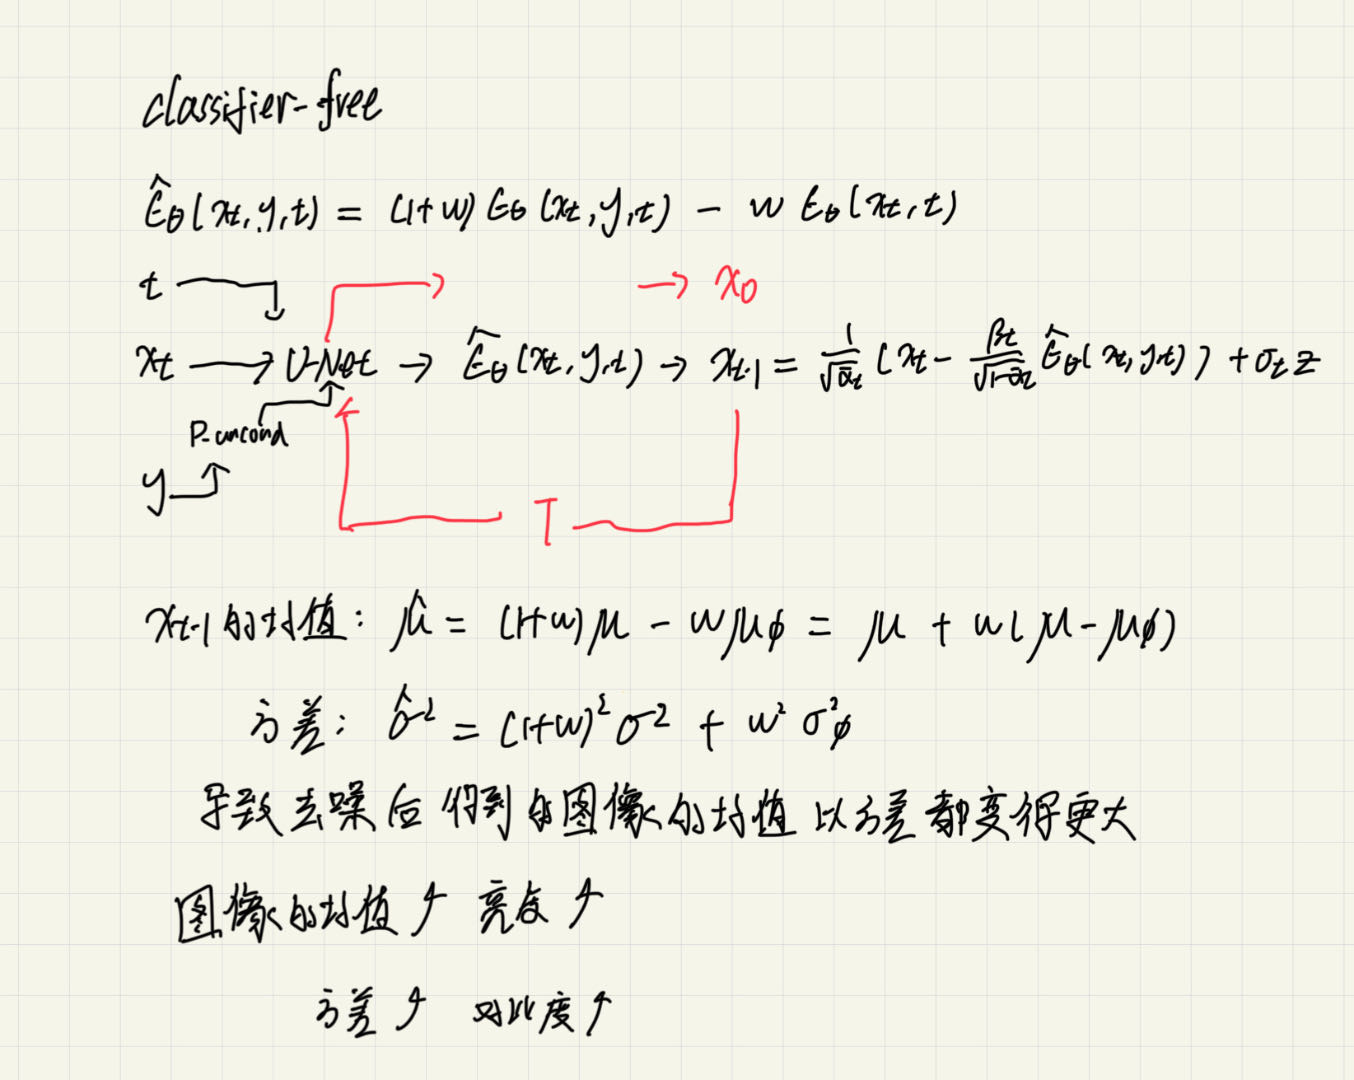 classifier-free
ε̂θ(xt, y, t) = (1+w) εθ(xt, y, t) − w εθ(xt, t)
t → x0
xt → U-Net → ε̂θ(xt, y, t) → xt-1 = 1/√ᾱt (xt − βt/√1-ᾱt ε̂θ(xt, y, t)) + σt z
P-uncond
y
T
xt-1的均值: μ̂ = (1+w)μ − wμφ = μ + w(μ−μφ)
方差: σ̂² = (1+w)²σ² + w²σ²φ
导致去噪后得到的图像的均值以方差都变得更大
图像的均值↑ 亮度↑
方差↑ 对比度↑